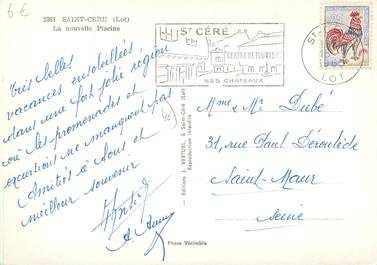 6€
2361 SAINT-CERE (Lot)
La nouvelle Piscine
Très belles
vacances ensoleillées,
dans une fort jolie région
où les promenades et
excursions ne manquent pas
Amitiés à tous et
meilleur souvenir
Editions J. VERTUEL, à Saint-Céré (Lot)
Reproduction interdite
Photo Véritable
ST CÉRÉ
CENTRE DE TOURISME
SES CHATEAUX
ST-
LOT
Mme & Mr Dubé
31, rue Paul Déroulède
Saint-Maur
Seine